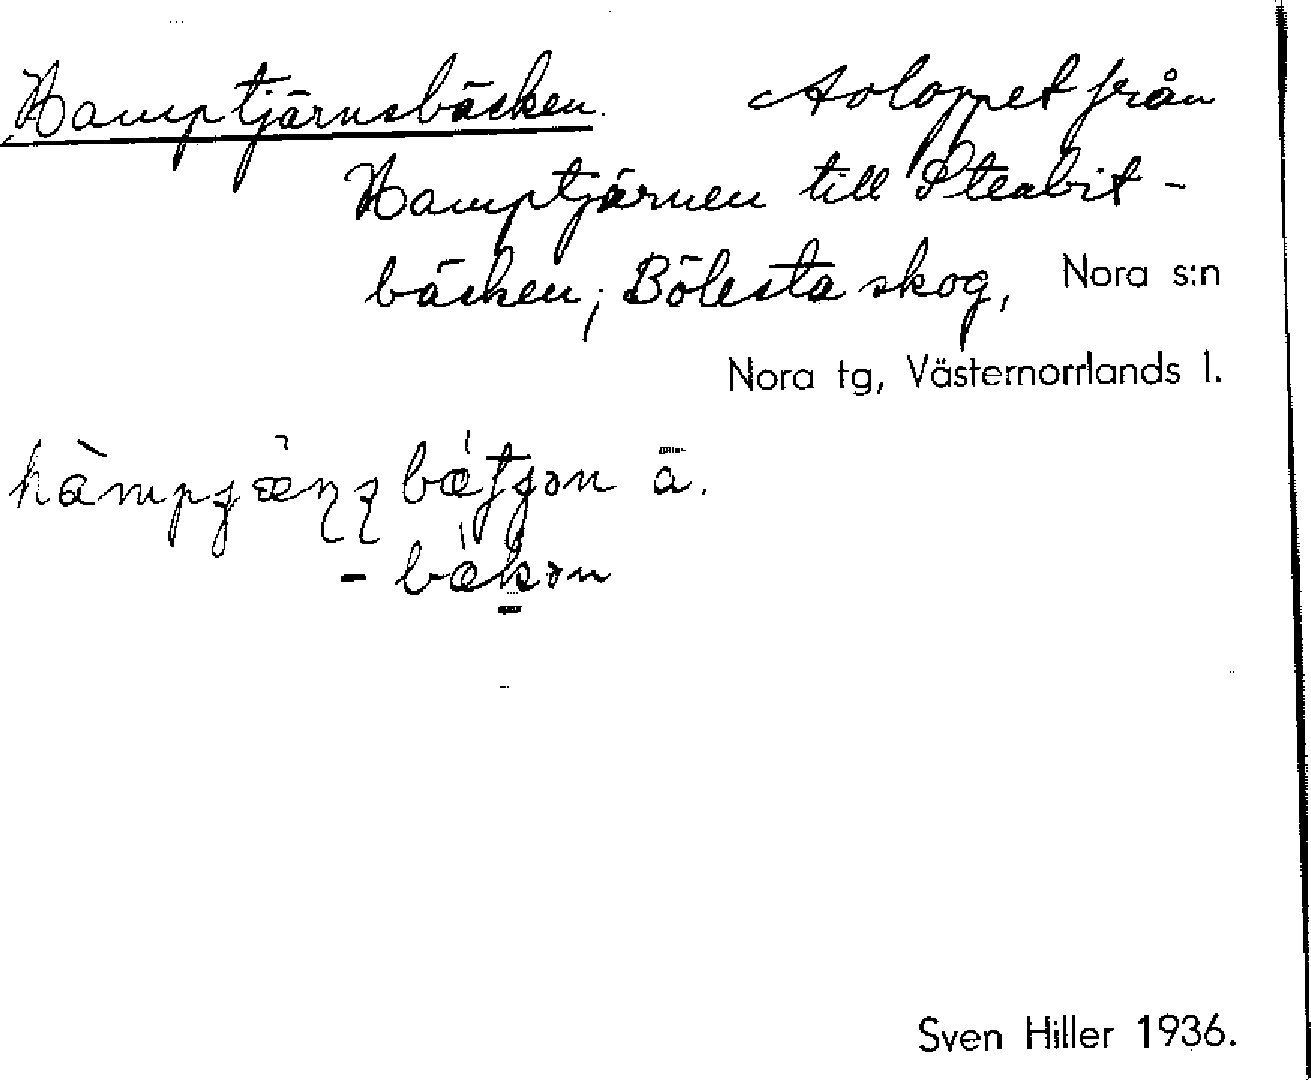 Hamptjärnsbäcken. Avloppet från
Hamptjärnen till Stenbit-
bäcken; Bölesta skog, Nora s:n
Nora tg, Västernorrlands l.
- bækən
Sven Hiller 1936.